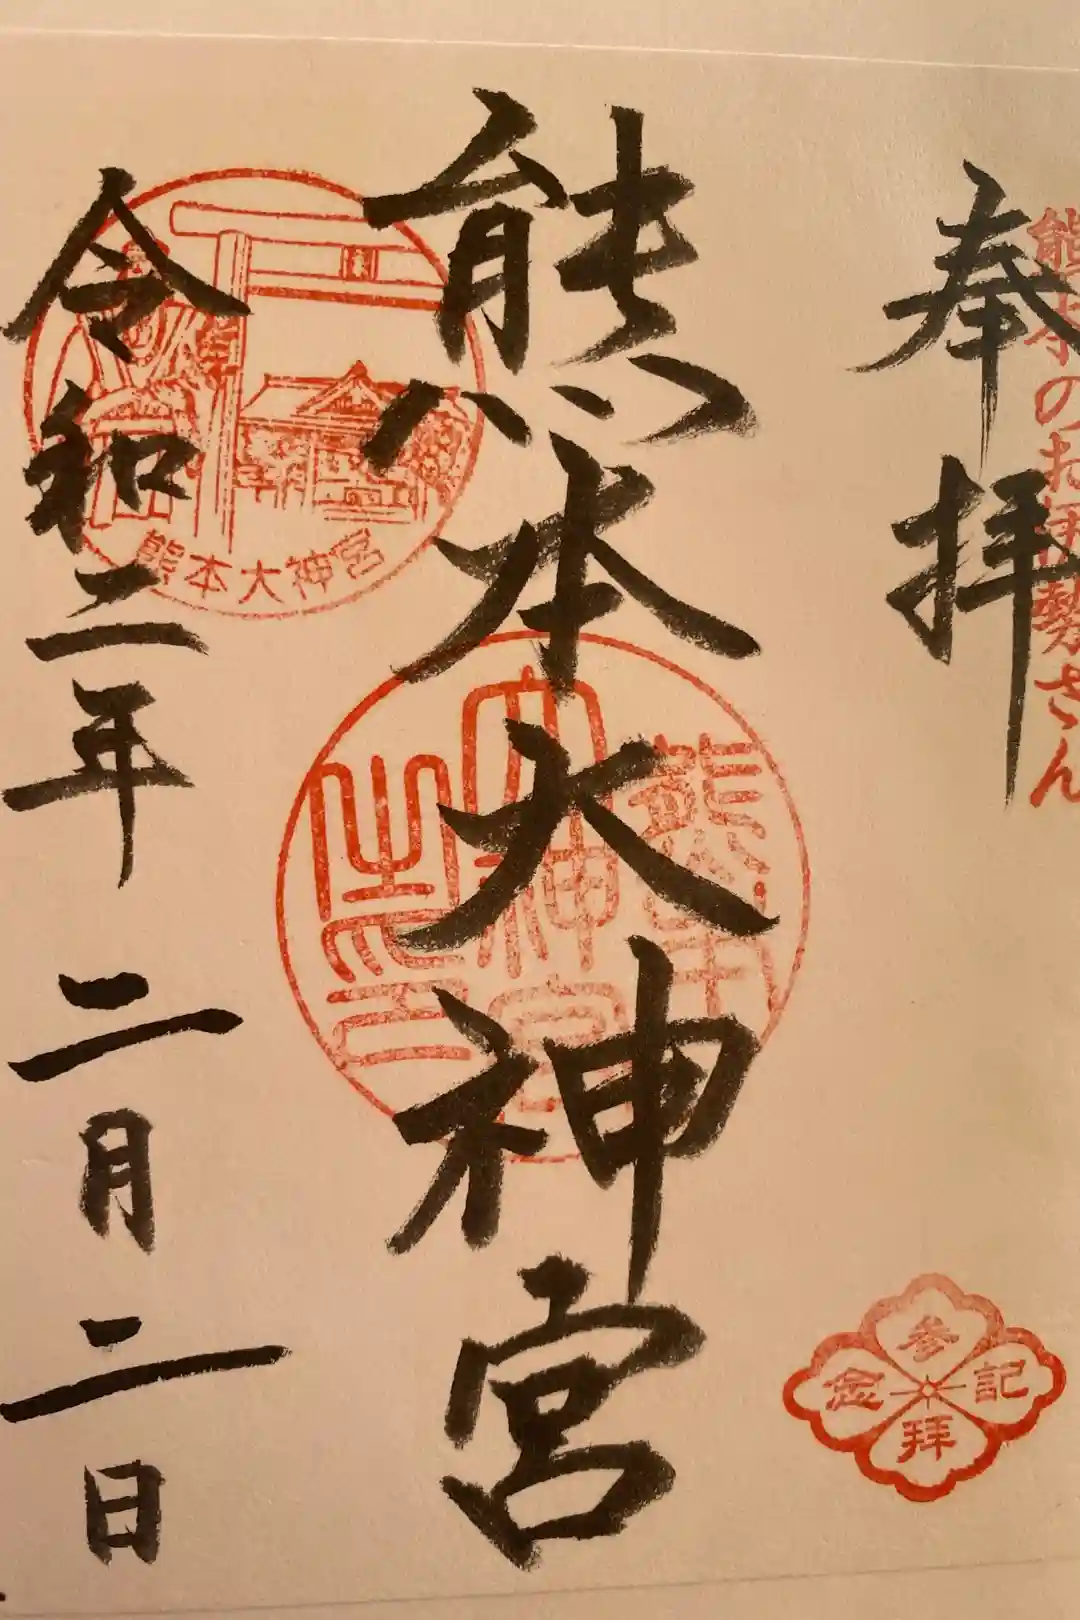 熊本のお伊勢さん
奉拝
参拝
記念
熊本大神宮
熊本
大神宮
之印
熊本大神宮
令和二年二月二日